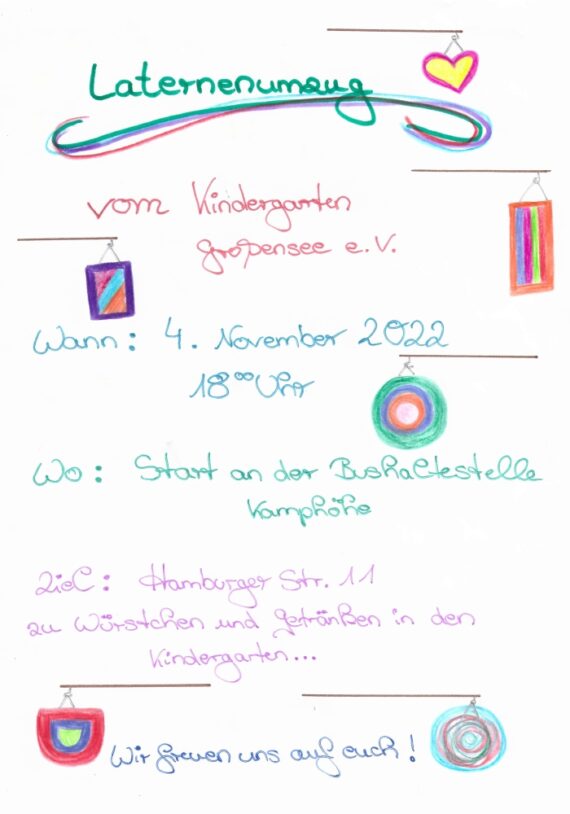 Laternenumzug
vom Kindergarten
Großensee e.V.
Wann: 4. November 2022
18⁰⁰ Uhr
Wo: Start an der Bushaltestelle
Kamphöhe
Ziel: Hamburger Str. 11
zu Würstchen und Getränken in den
Kindergarten...
Wir freuen uns auf euch!